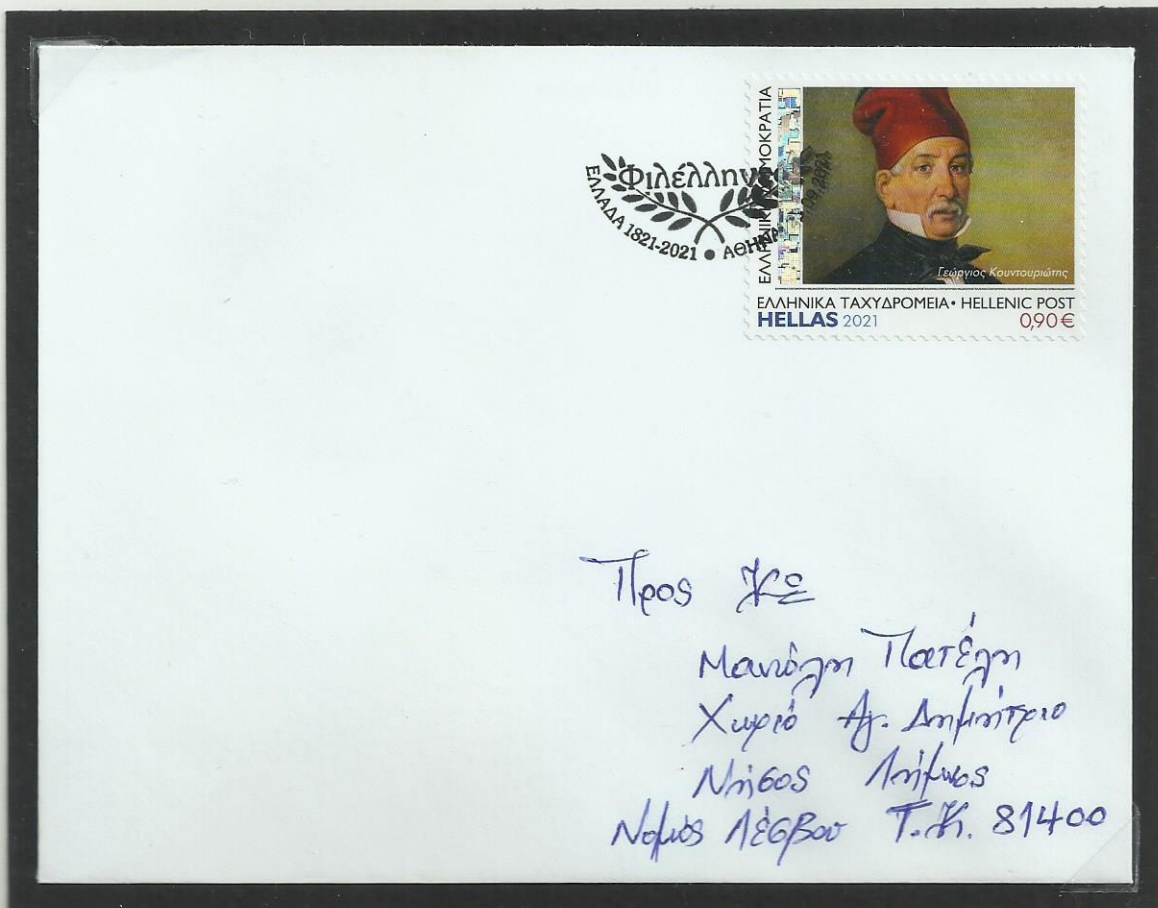 Φιλέλληνες
ΕΛΛΑΔΑ 1821-2021 • ΑΘΗΝΑ
ΕΛΛΗΝΙΚΗ ΔΗΜΟΚΡΑΤΙΑ
Γεώργιος Κουντουριώτης
ΕΛΛΗΝΙΚΑ ΤΑΧΥΔΡΟΜΕΙΑ • HELLENIC POST
HELLAS 2021 0,90 €
Προς Κο
Μανώλη Πατέλη
Χωριό Αγ. Δημήτριο
Νήσος Λήμνος
Νομός Λέσβου Τ.Κ. 81400